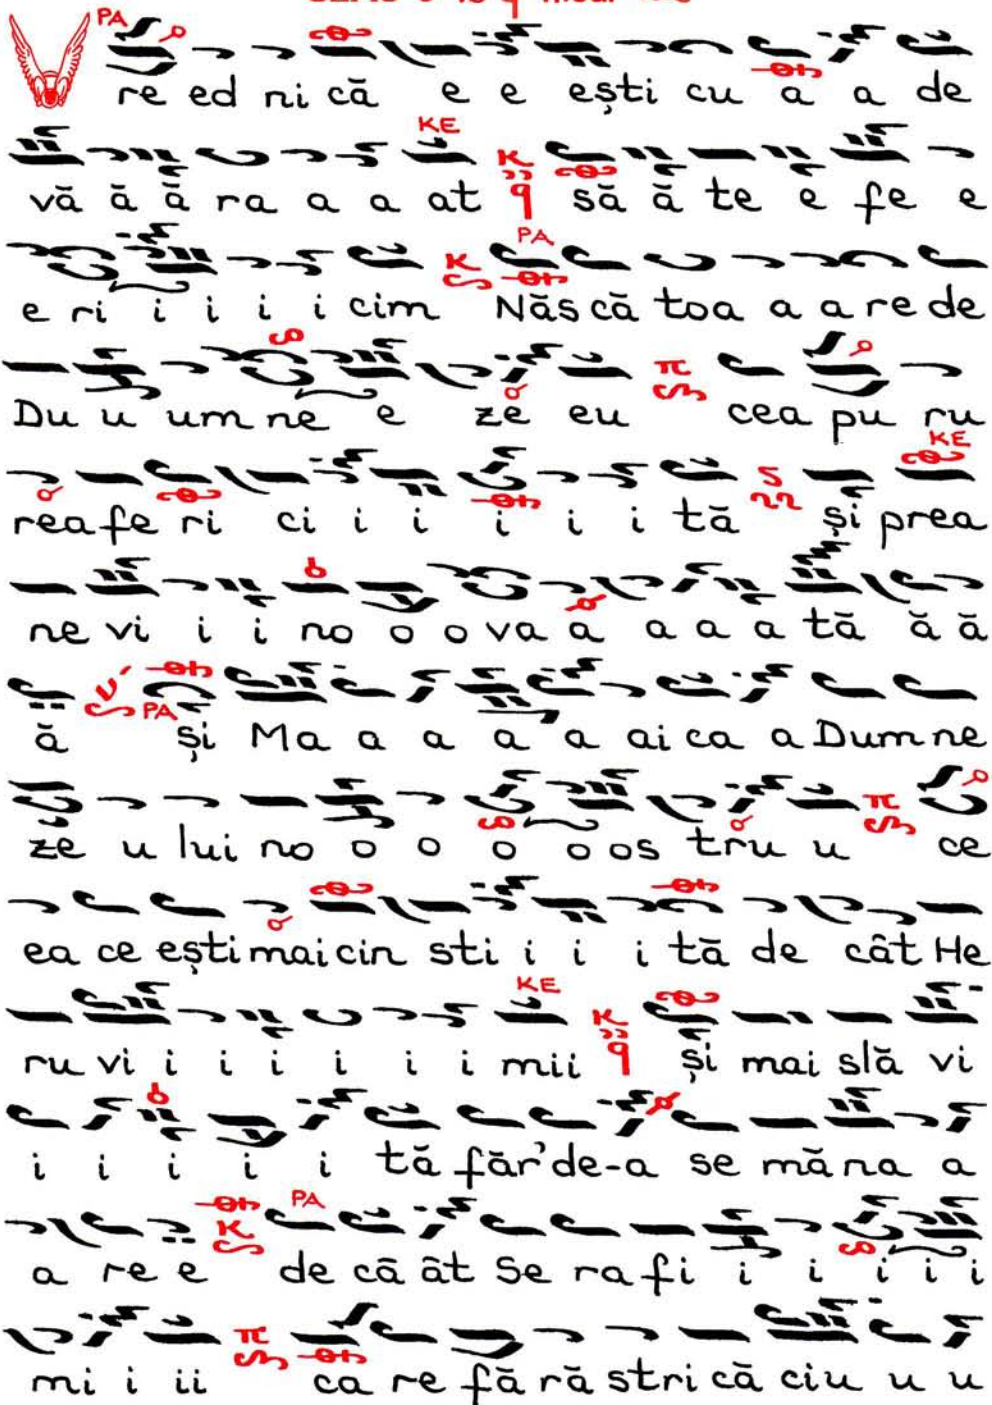 PA
re ed ni că e e ești cu a a de
KE
vă ă ă ra a a at să ă te e fe e
PA
e ri i i i i cim Năs că toa a a re de
Du u um ne e ze eu cea pu ru
KE
rea fe ri ci i i i i i tă și prea
ne vi i i no o o va a a a a tă ă ă
PA
ă și Ma a a a a ai ca a Dum ne
ze u lui no o o o o os tru u ce
ea ce ești mai cin sti i i i tă de cât He
KE
ru vi i i i i i i mii și mai slă vi
i i i i i tă făr'de-a se mă na a
PA
a re e de câ ât Se ra fi i i i i i
mi i ii ca re fă ră stri că ciu u u